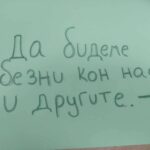 Да бидеме
безни кон нас
и другите.-